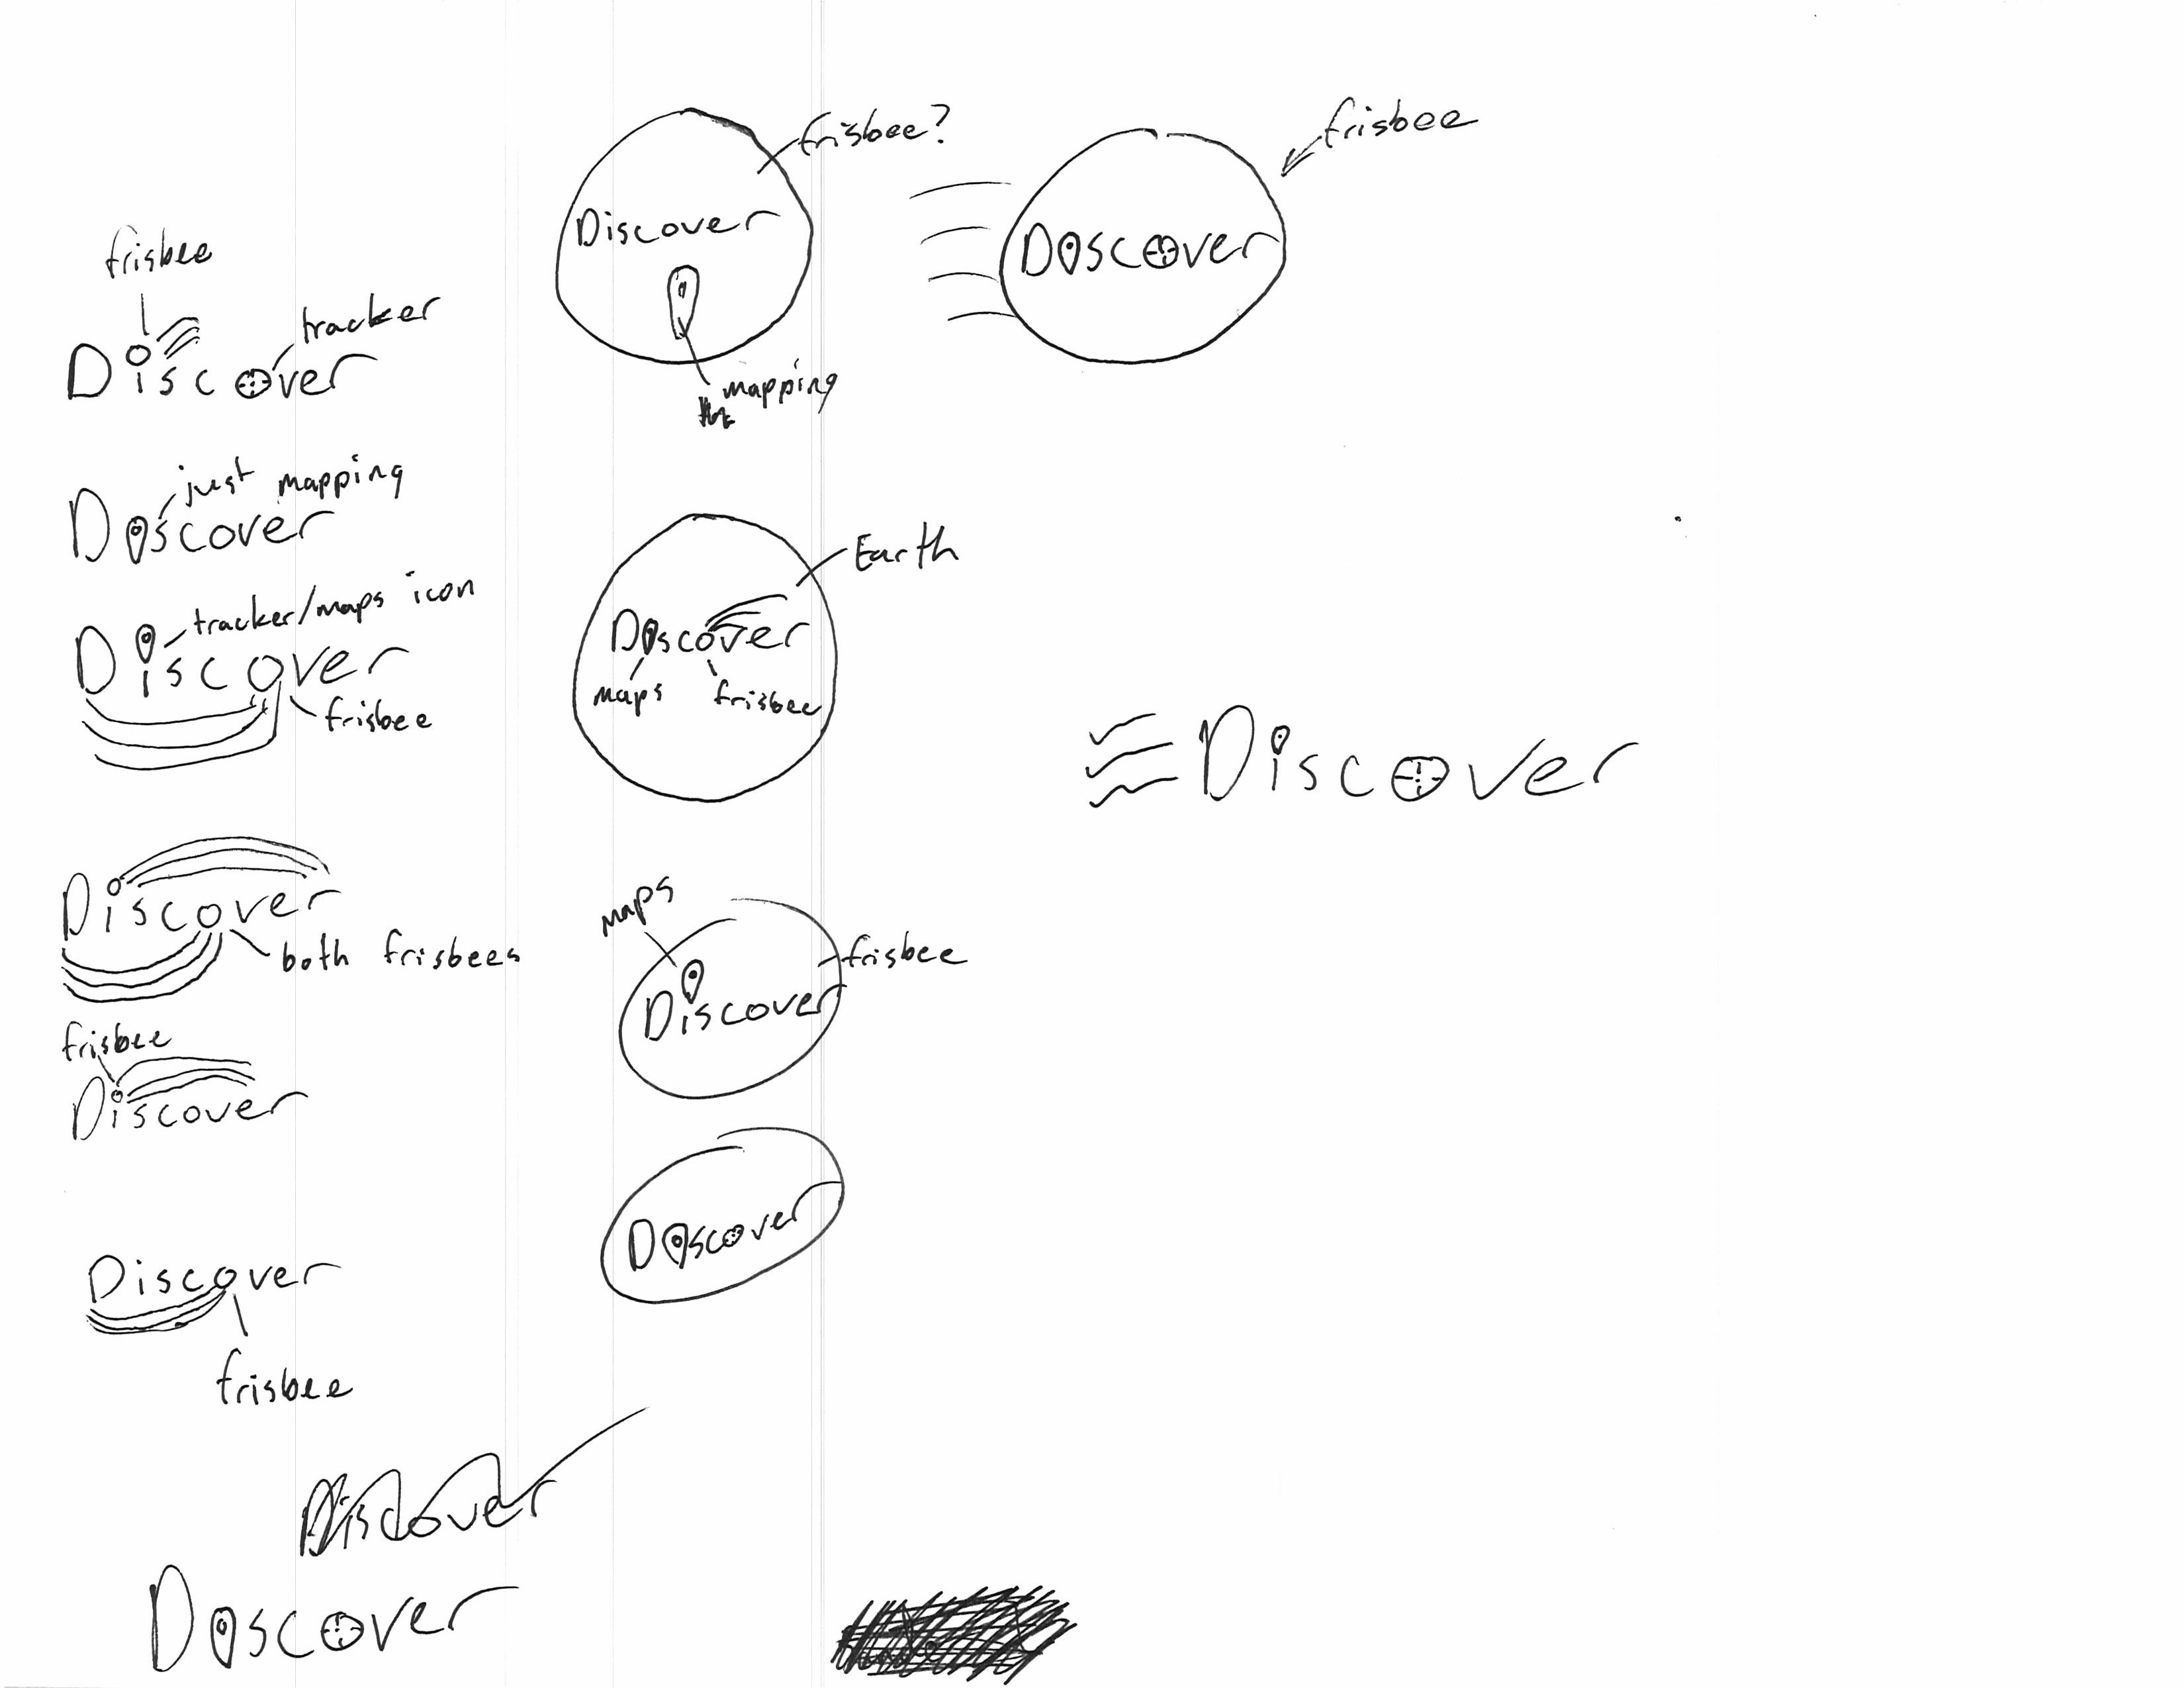 frisbee
tracker
Discover
just mapping
Discover
tracker/maps icon
Discover
frisbee
Discover
both frisbees
frisbee
Discover
Discover
frisbee
Discover
Discover
frisbee?
Discover
mapping
Earth
Discover
maps frisbee
maps
frisbee
Discover
Discover
frisbee
Discover
Discover